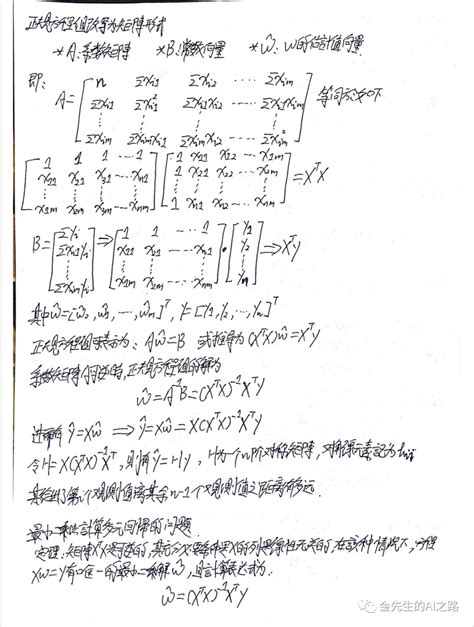 正规方程组改写为矩阵形式
*A:系数矩阵 *B:常数向量 *ŵ:w的估计值向量
即: A=[n Σxi1 Σxi2 ... Σxim; Σxi1 Σxi1² Σxi1xi2 ... Σxi1xim; ⋮; Σxim Σximxi1 Σximxi2 ... Σxim²] 等同于如下
[1 1 1 ... 1; x11 x21 x31 ... xn1; ⋮; x1m x2m x3m ... xnm][1 x11 x12 ... x1m; 1 x21 x22 ... x2m; ⋮; 1 xn1 xn2 ... xnm]=XᵀX
B=[Σyi; Σxi1yi; ⋮; Σximyi]⇒[1 1 ... 1; x11 x21 ... xn1; ⋮; x1m x2m ... xnm]·[y1; y2; ⋮; yn]⇒XᵀY
其中ŵ=[ŵ0, ŵ1, ... ŵm]ᵀ, Y=[Y1, Y2, ... Yn]ᵀ
正规方程组表示为: Aŵ=B 或推导为(XᵀX)ŵ=XᵀY
系数矩阵A可逆时,正规方程组的解为
ŵ=A⁻¹B=(XᵀX)⁻¹XᵀY
进而有Ŷ=Xŵ ⇒ Ŷ=Xŵ=X(XᵀX)⁻¹XᵀY
令H=X(XᵀX)⁻¹Xᵀ,则有Ŷ=HY, H为一个n阶对称矩阵,对角元素记为hii
其给出了第i个观测值离其余n-1个观测值之距离有多远.
最小二乘法计算多元回归的问题
定理:矩阵XᵀX是可逆的,其充分必要条件是X的列是线性无关的,在这种情况下,方程
Xw=Y有唯一的最小二乘解ŵ,且计算表达式为:
ŵ=(XᵀX)⁻¹XᵀY
金先生的AI之路